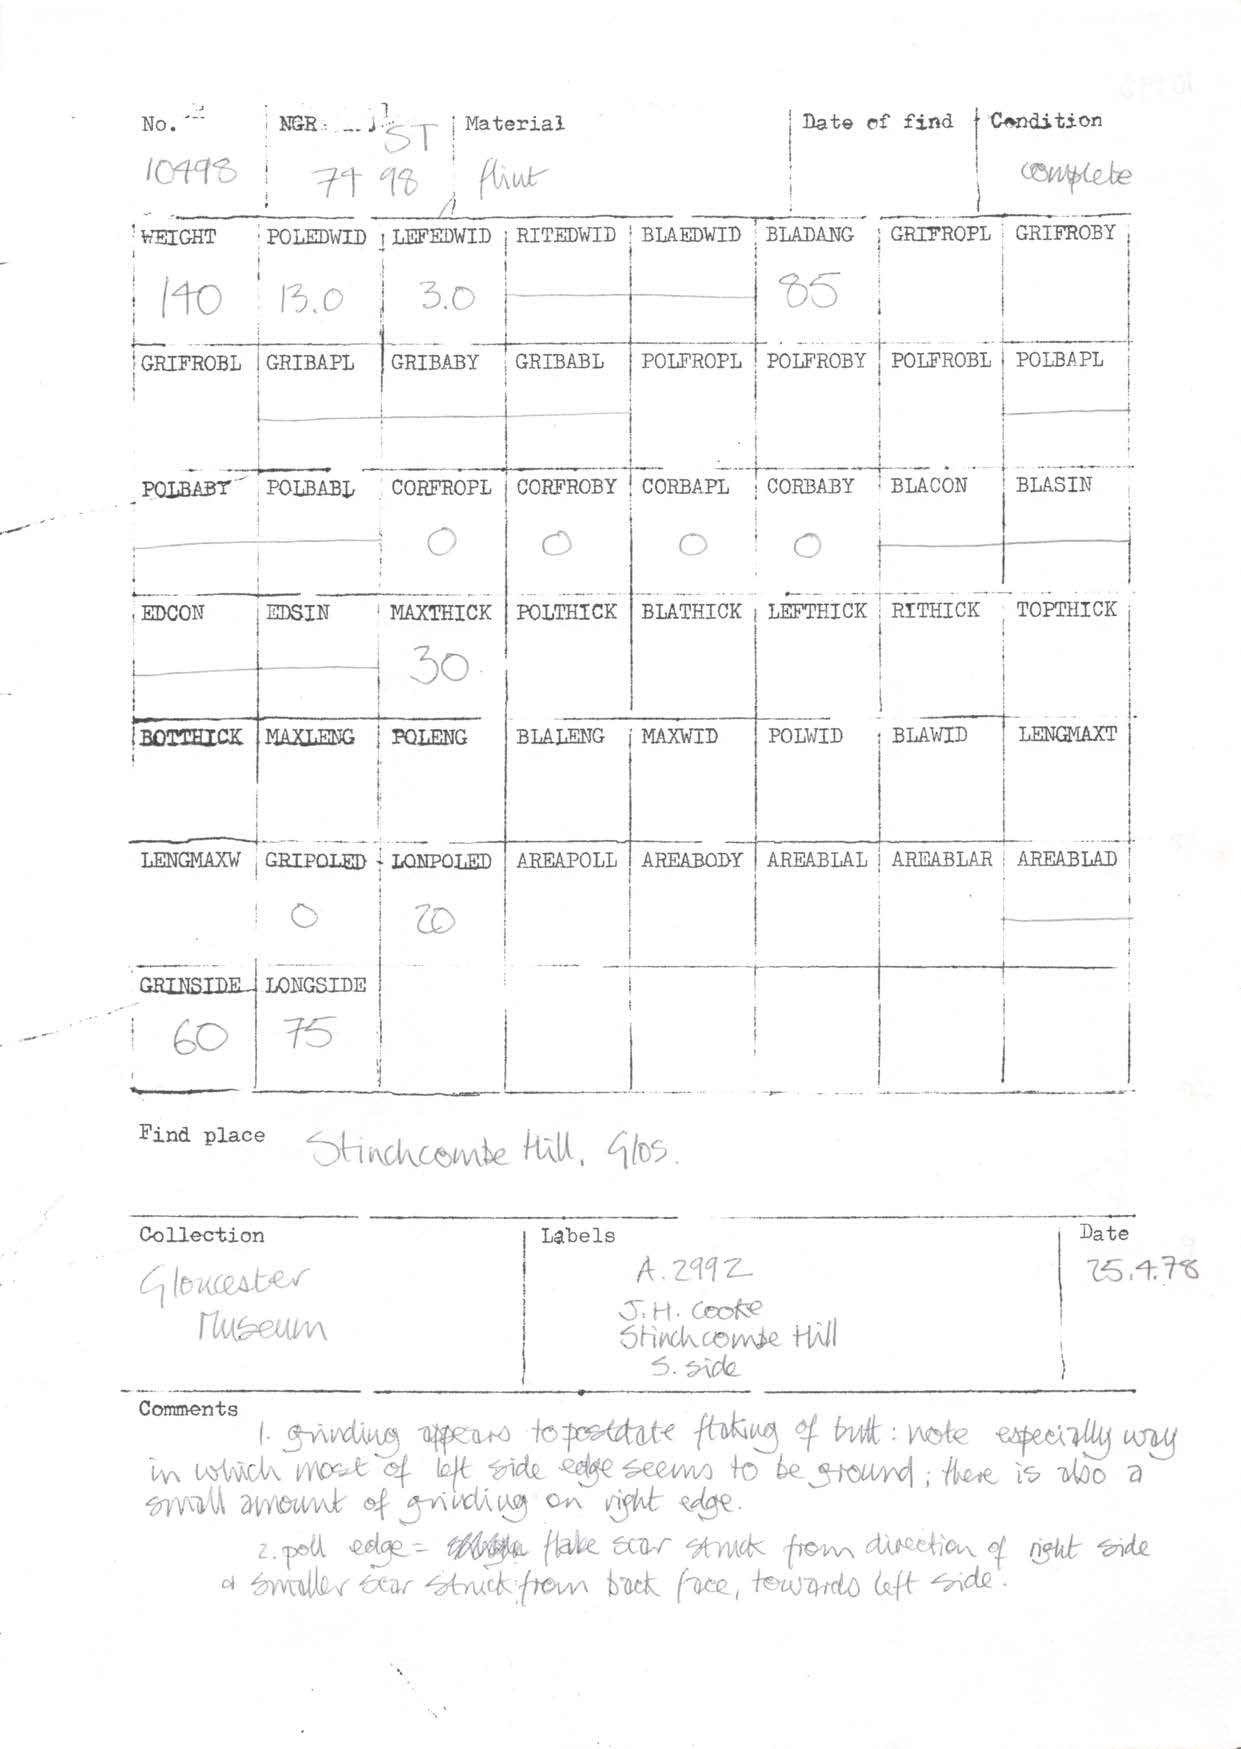 No. NGR ST Material Date of find Condition
10498 74 98 flint complete
WEIGHT POLEDWID LEFEDWID RITEDWID BLAEDWID BLADANG GRIFROPL GRIFROBY
140 13.0 3.0 85
GRIFROBL GRIBAPL GRIBABY GRIBABL POLFROPL POLFROBY POLFROBL POLBAPL
POLBABY POLBABL CORFROPL CORFROBY CORBAPL CORBABY BLACON BLASIN
0 0 0 0
EDCON EDSIN MAXTHICK POLTHICK BLATHICK LEFTHICK RITHICK TOPTHICK
30
BOTTHICK MAXLENG POLENG BLALENG MAXWID POLWID BLAWID LENGMAXT
LENGMAXW GRIPOLED LONPOLED AREAPOLL AREABODY AREABLAL AREABLAR AREABLAD
0 20
GRINSIDE LONGSIDE
60 75
Find place Stinchcombe Hill, Glos.
Collection Labels Date
Gloucester A.2992 25.4.78
Museum J.H. Cooke
Stinchcombe Hill
S. side
Comments
1. grinding appears to postdate flaking of butt: note especially way
in which most of left side edge seems to be ground; there is also a
small amount of grinding on right edge.
2. poll edge = flake scar struck from direction of right side
& smaller scar struck from back face, towards left side.